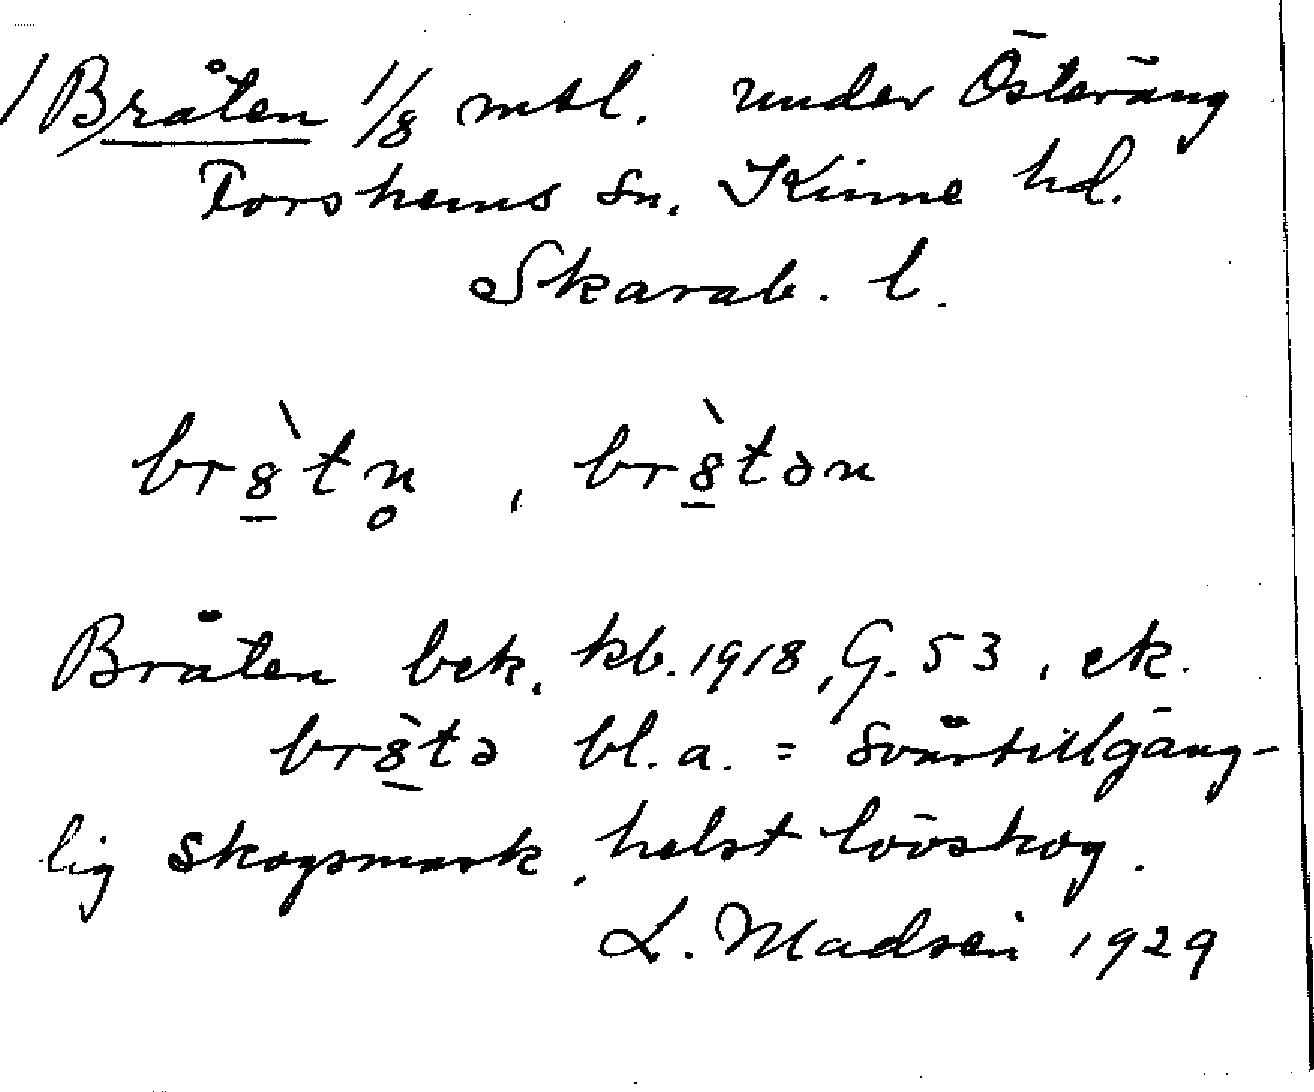 / Bråten 1/8 mtl. under Österäng
Forshems sn. Kinne hd.
Skarab. l.
br8̲̀tn̥ , br8̲̀tən
Bråten bek. kb. 1918, G. 53, ek.
br8̲̀tə bl. a. = svårtillgäng-
lig skogsmark, helst lövskog.
L. Madsén 1929